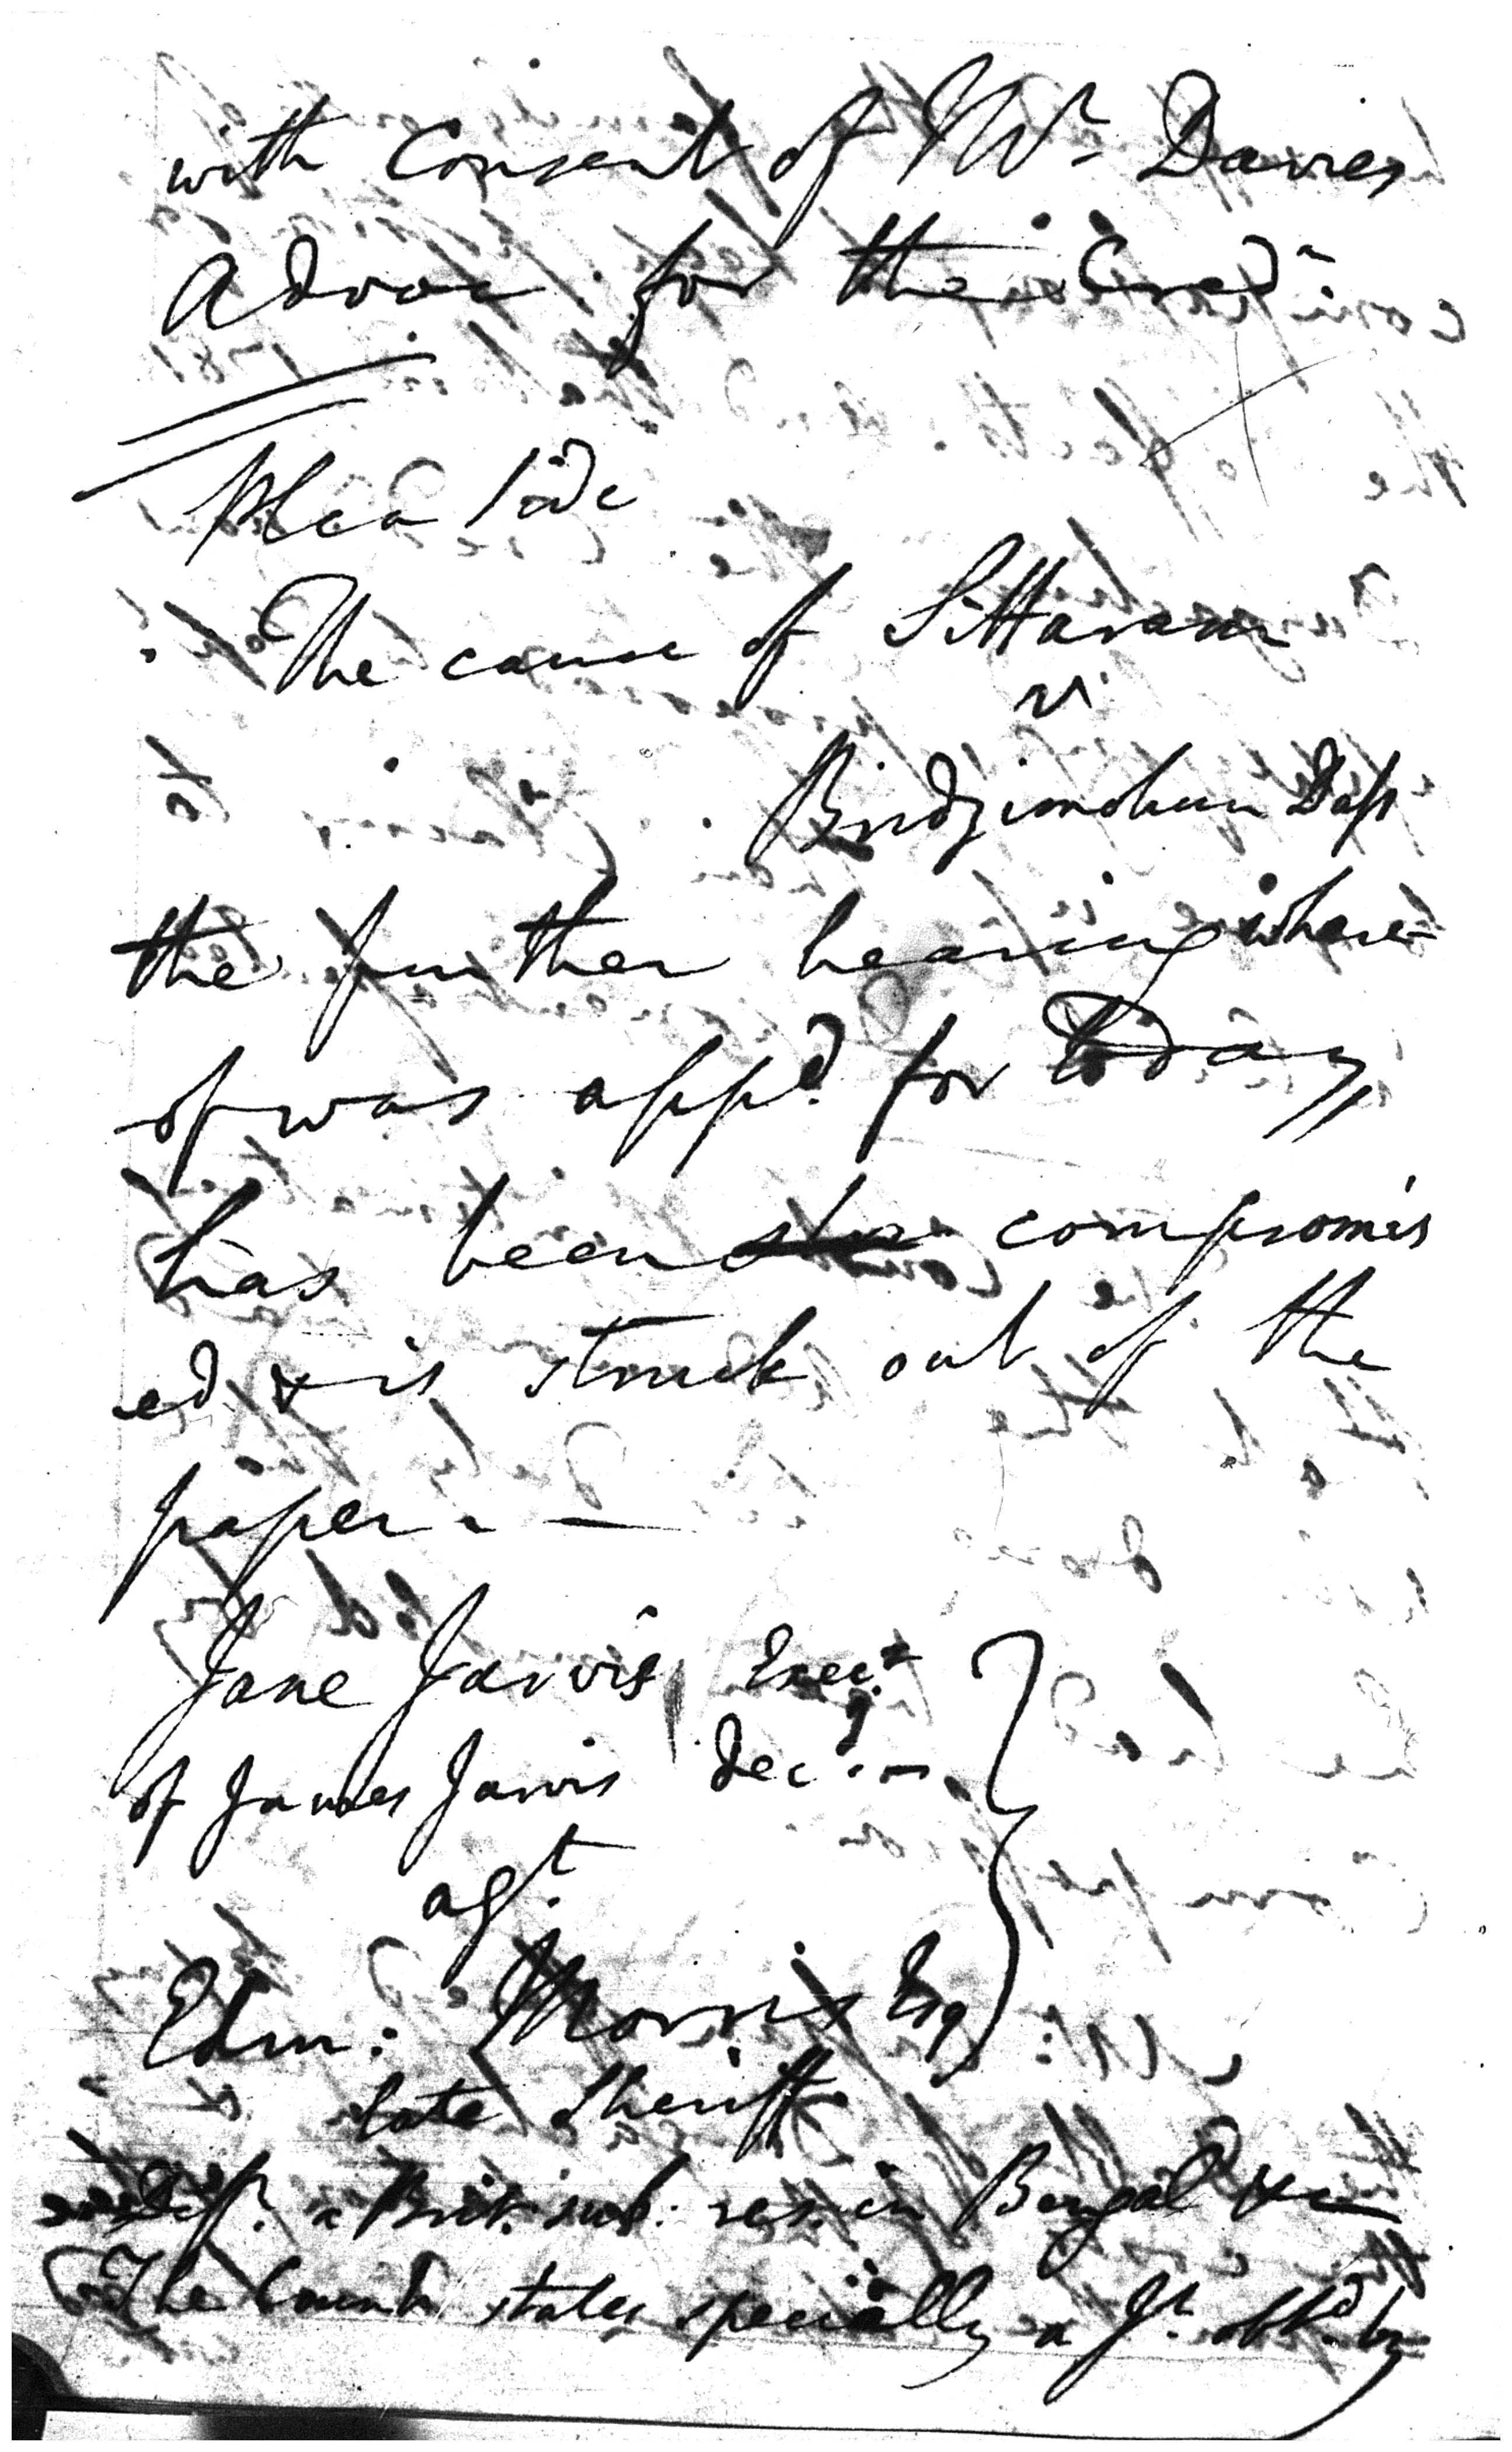 with Consent of Mr Davies
Advoc for the Cred
Plea Side
The cause of Sittaram
v
Bridjimohun Dass
the further hearing where-
of was appd. for today
has been compromis
ed & is struck out of the
paper. —
Jane Jarvis Execx
of James Jarvis dec
agt.
Edm: Morris Esq
late Sheriff
Deft. a Brit. sub. res. in Bengal &c
The Count states specially a Jt. obtd. by